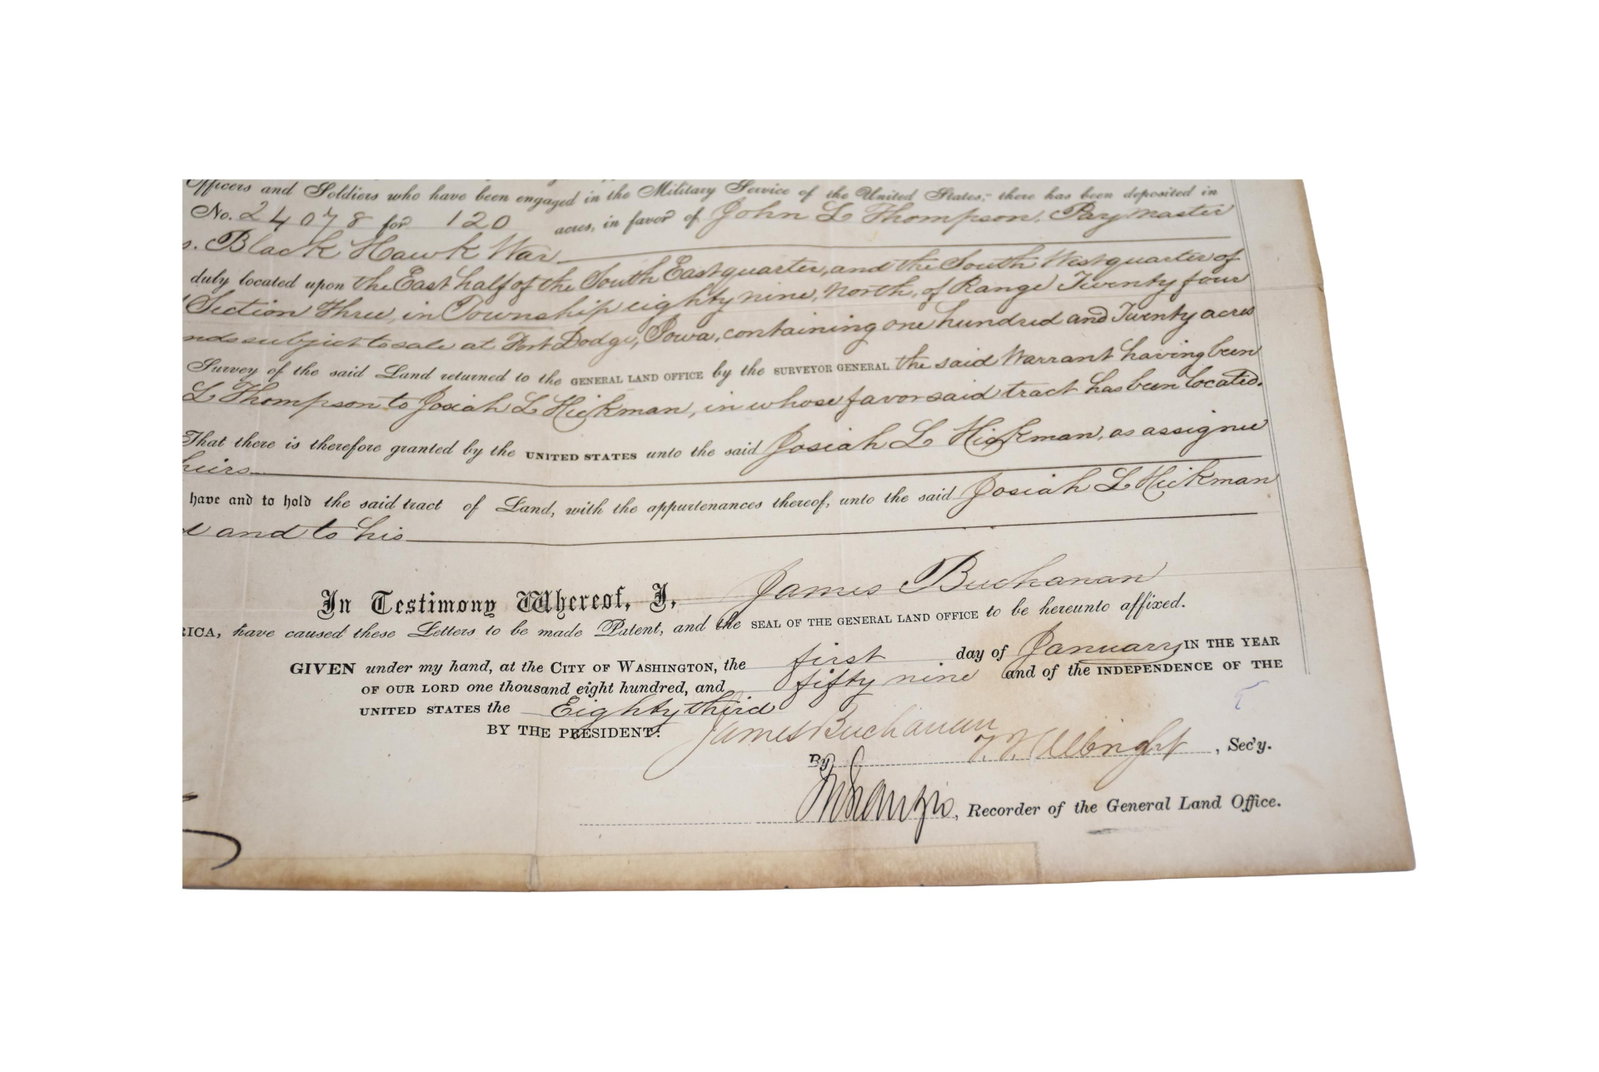 Officers and Soldiers who have been engaged in the Military Service of the United States," there has been deposited in
No. 24078 for 120 acres, in favor of John L Thompson, Paymaster
s. Black Hawk War
duly located upon the East half of the South East quarter, and the South West quarter of
Section Three, in Township eighty nine, North, of Range Twenty four
nds subject to sale at Fort Dodge, Iowa, containing one hundred and Twenty acres
Survey of the said Land returned to the GENERAL LAND OFFICE by the SURVEYOR GENERAL the said Warrant having been
L Thompson to Josiah L Hickman, in whose favor said tract has been located.
That there is therefore granted by the UNITED STATES unto the said Josiah L Hickman, as assignee
heirs
have and to hold the said tract of Land, with the appurtenances thereof, unto the said Josiah L Hickman
and to his
In Testimony Whereof, I, James Buchanan
RICA, have caused these Letters to be made Patent, and the SEAL OF THE GENERAL LAND OFFICE to be hereunto affixed.
GIVEN under my hand, at the CITY OF WASHINGTON, the first day of January IN THE YEAR
OF OUR LORD one thousand eight hundred, and fifty nine and of the INDEPENDENCE OF THE
UNITED STATES the Eighty third
BY THE PRESIDENT: James Buchanan
By Albright, Sec'y.
, Recorder of the General Land Office.